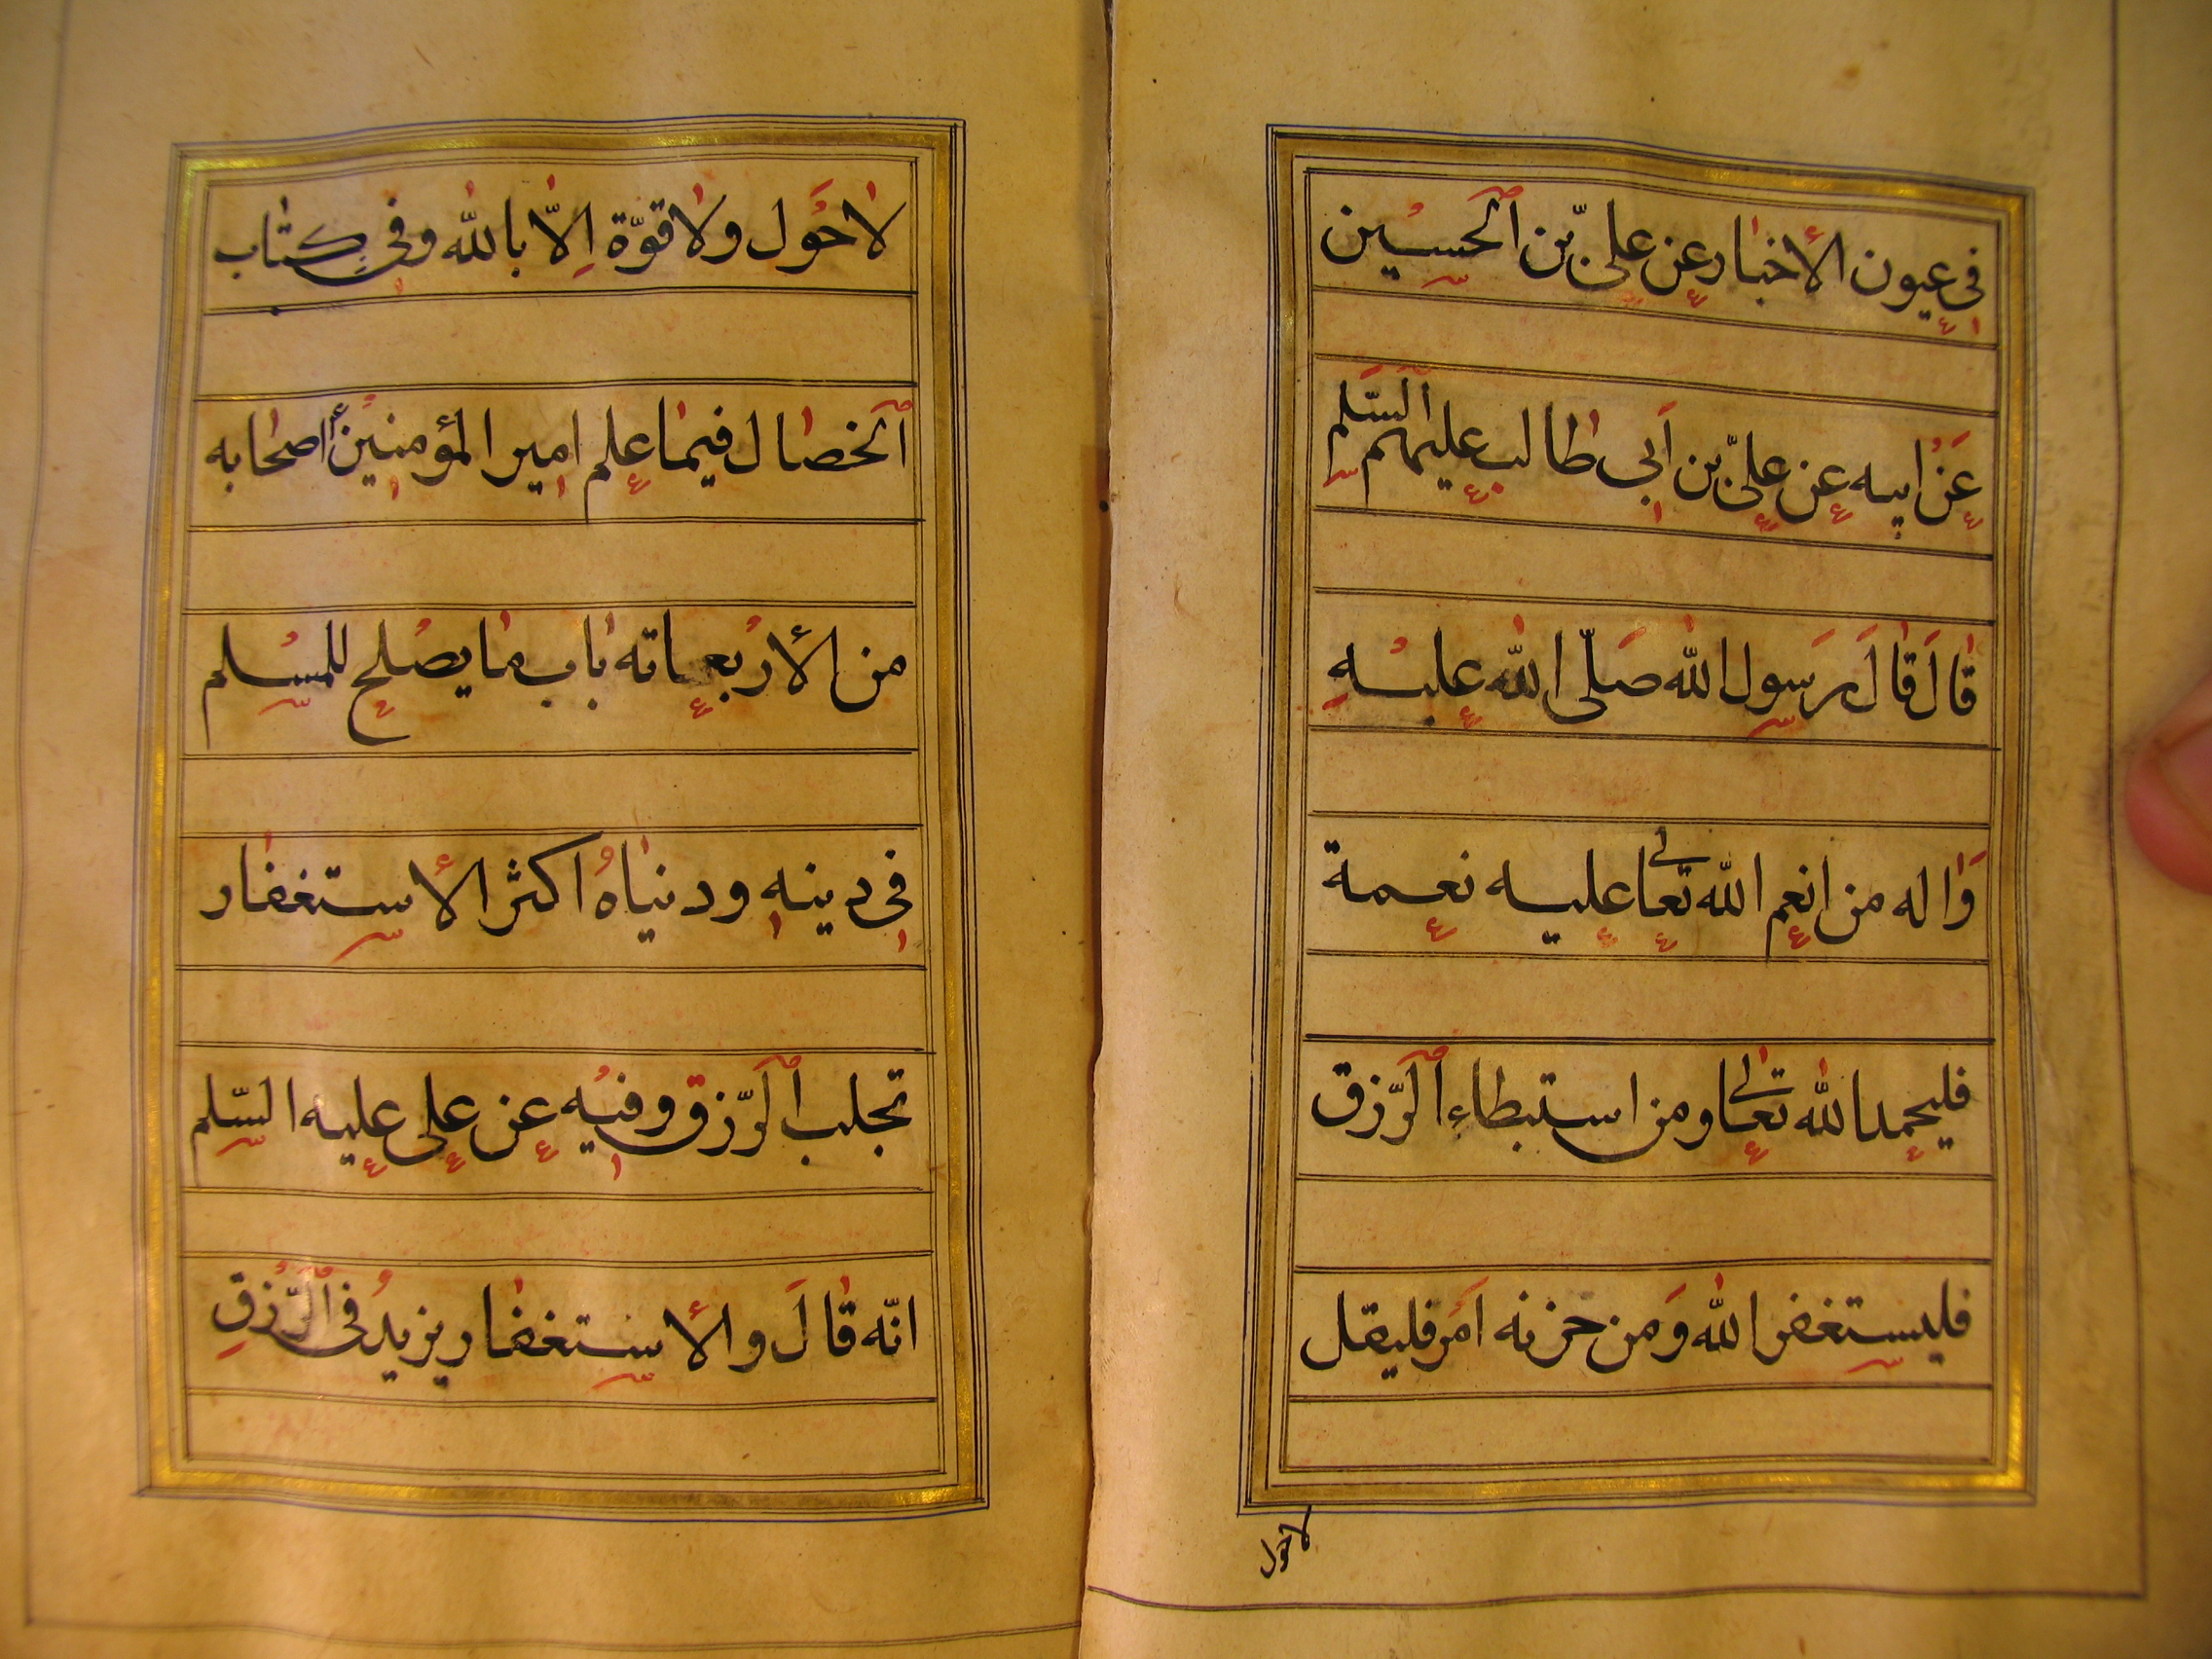 في عيون الأخبار عن علىّ بن ٱلحسين
عن ابيه عن علىّ بن أبى طالب عليهم السّلم
قال قال رسول الله صلّى الله عليه
واله من انعم الله تعالى عليه نعمة
فليحمد الله تعالى ومن استبطاء ٱلرّزق
فليستغفر الله ومن حزنه امر فليقل
لاحول
لا حول ولا قوّة اِلاّ بالله وفى كِتاب
ٱلخصال فيما علم امير المؤمنين أصحابه
من الأربعمائه باب مما يصلح للمسلم
فى دينه ودنياه اكثر الأستغفار
تجلب ٱلرّزق وفيه عن على عليه السّلم
انّه قال والأستغفار يزيد فى ٱلرّزقِ